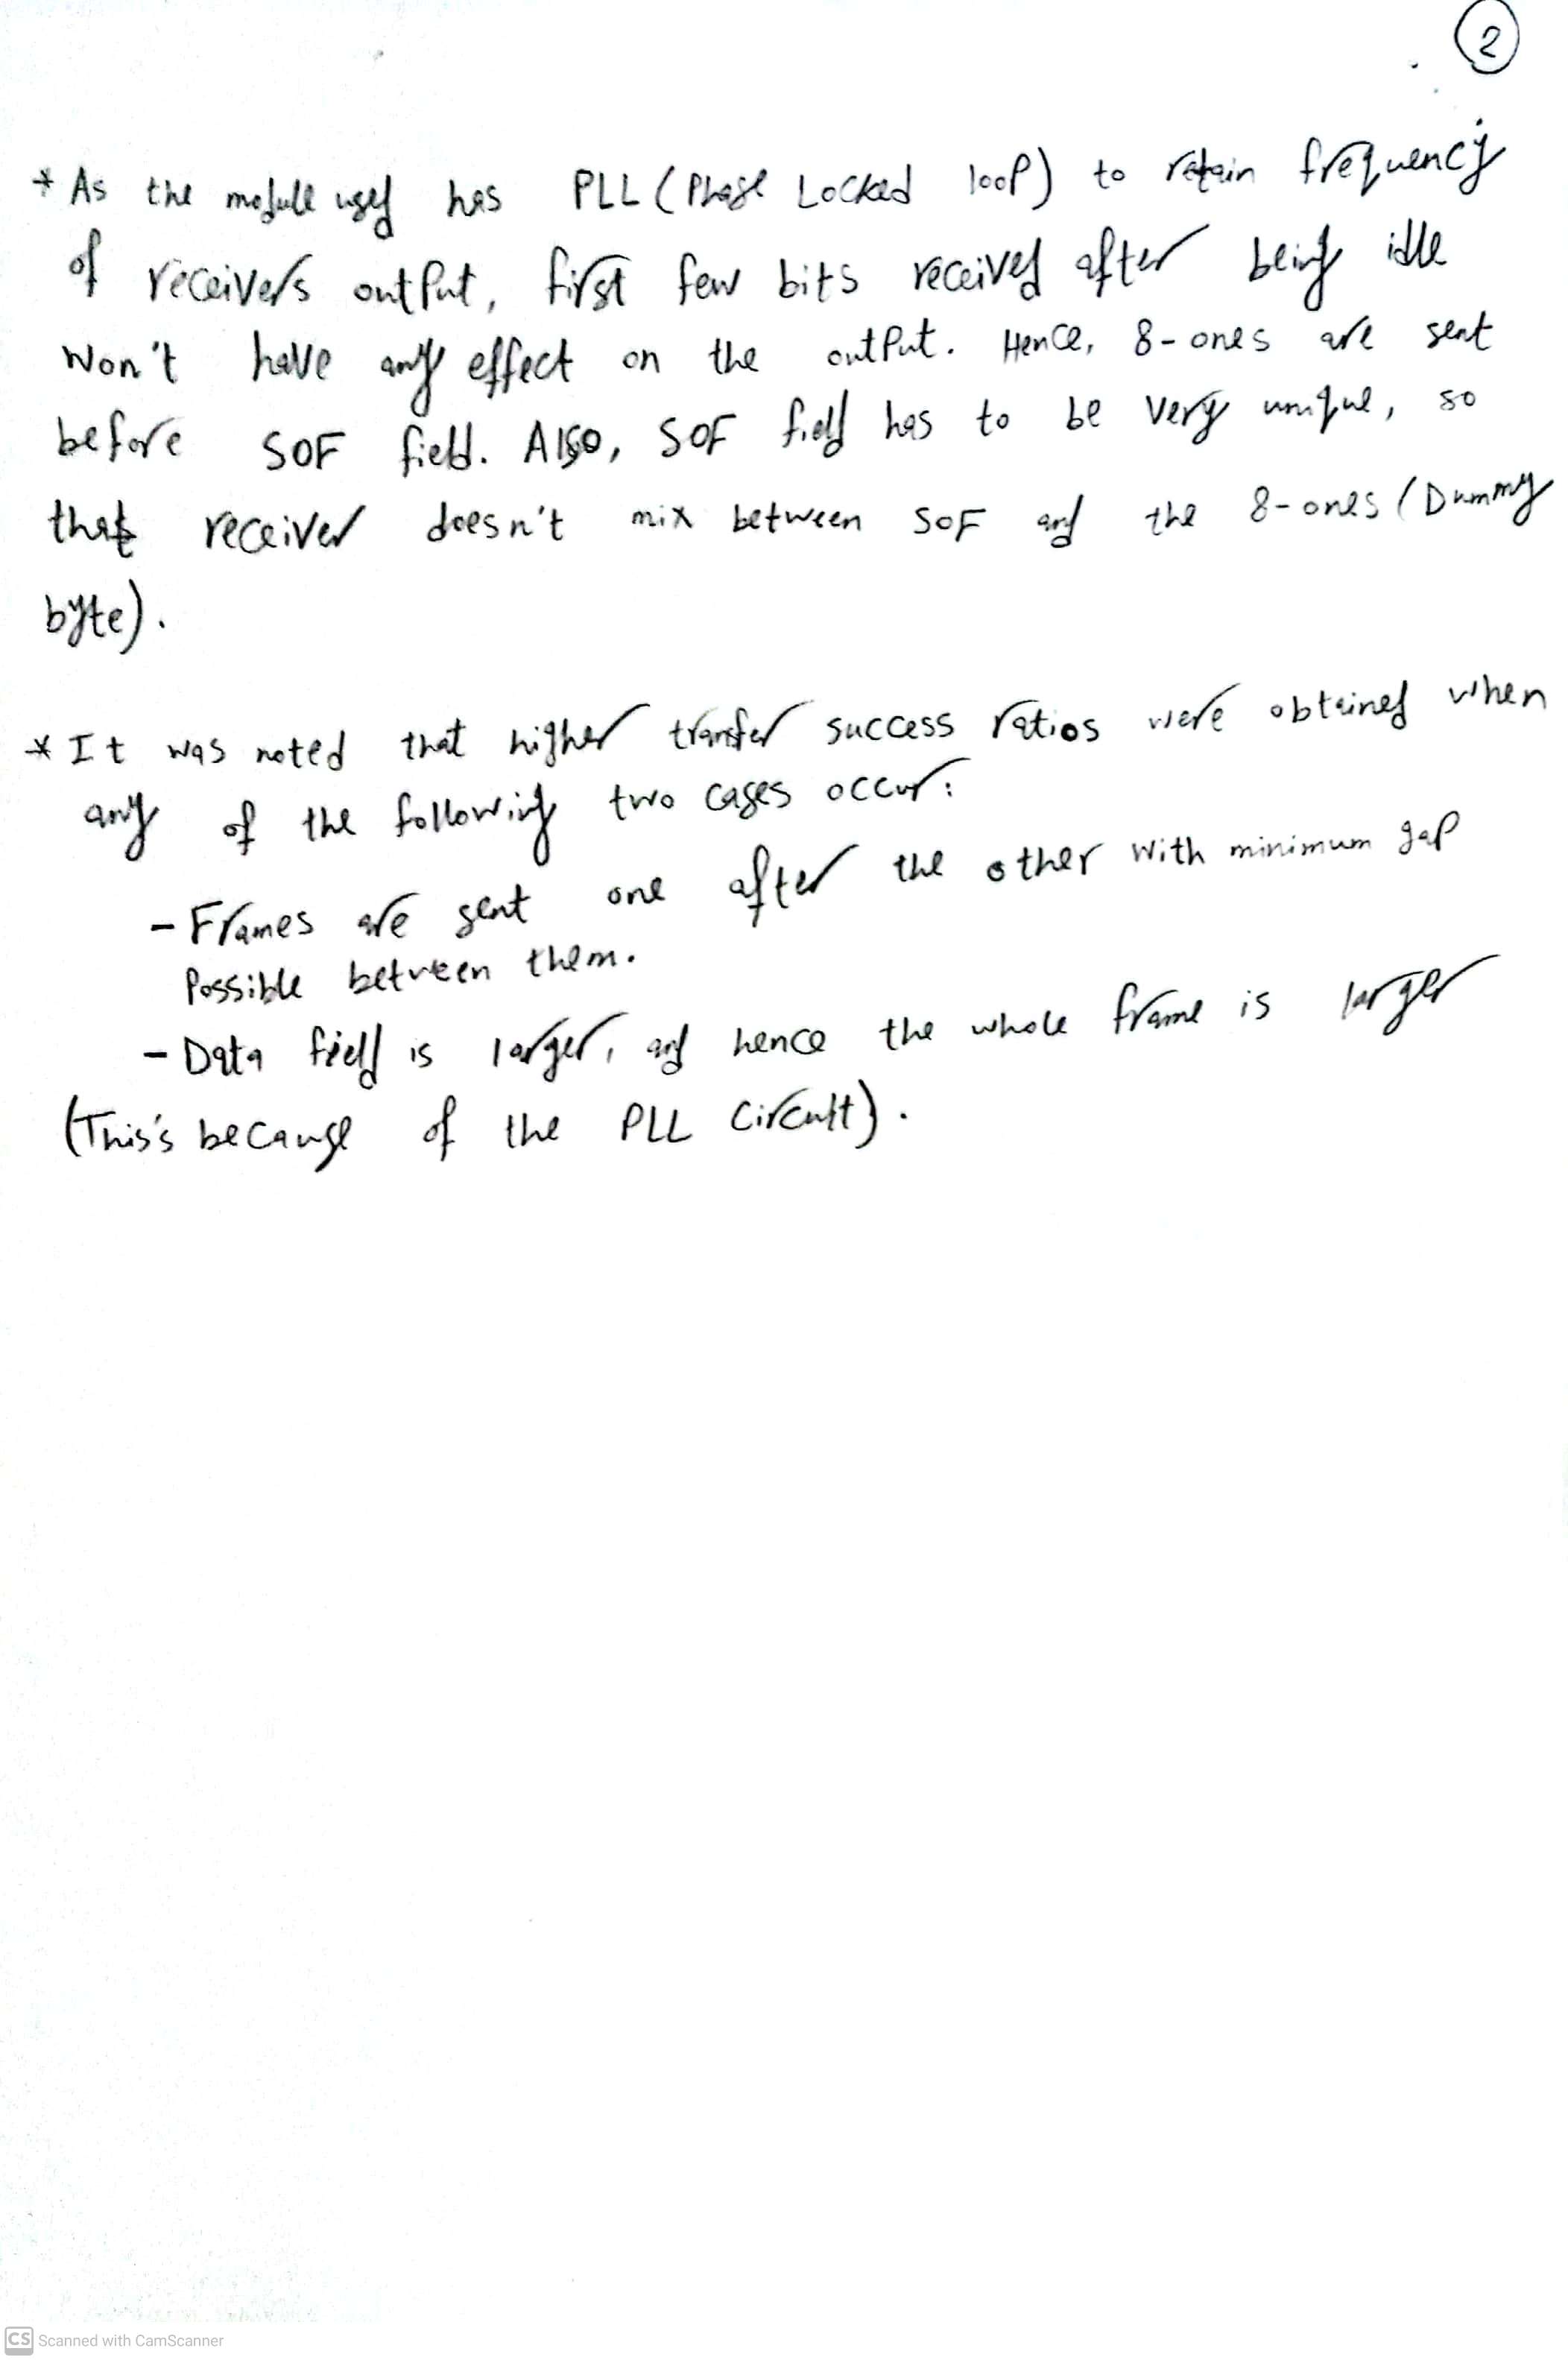 2
* As the module used has PLL (Phase Locked loop) to retain frequency
of receivers output, first few bits received after being idle
won't have any effect on the output. Hence, 8-ones are sent
before SOF field. Also, SOF field has to be very unique, so
that receiver doesn't mix between SOF and the 8-ones (Dummy
byte).
* It was noted that higher transfer success ratios were obtained when
any of the following two cases occur:
- Frames are sent one after the other with minimum gap
Possible between them.
- Data field is larger, and hence the whole frame is larger
(This's because of the PLL Circuit).
CS Scanned with CamScanner